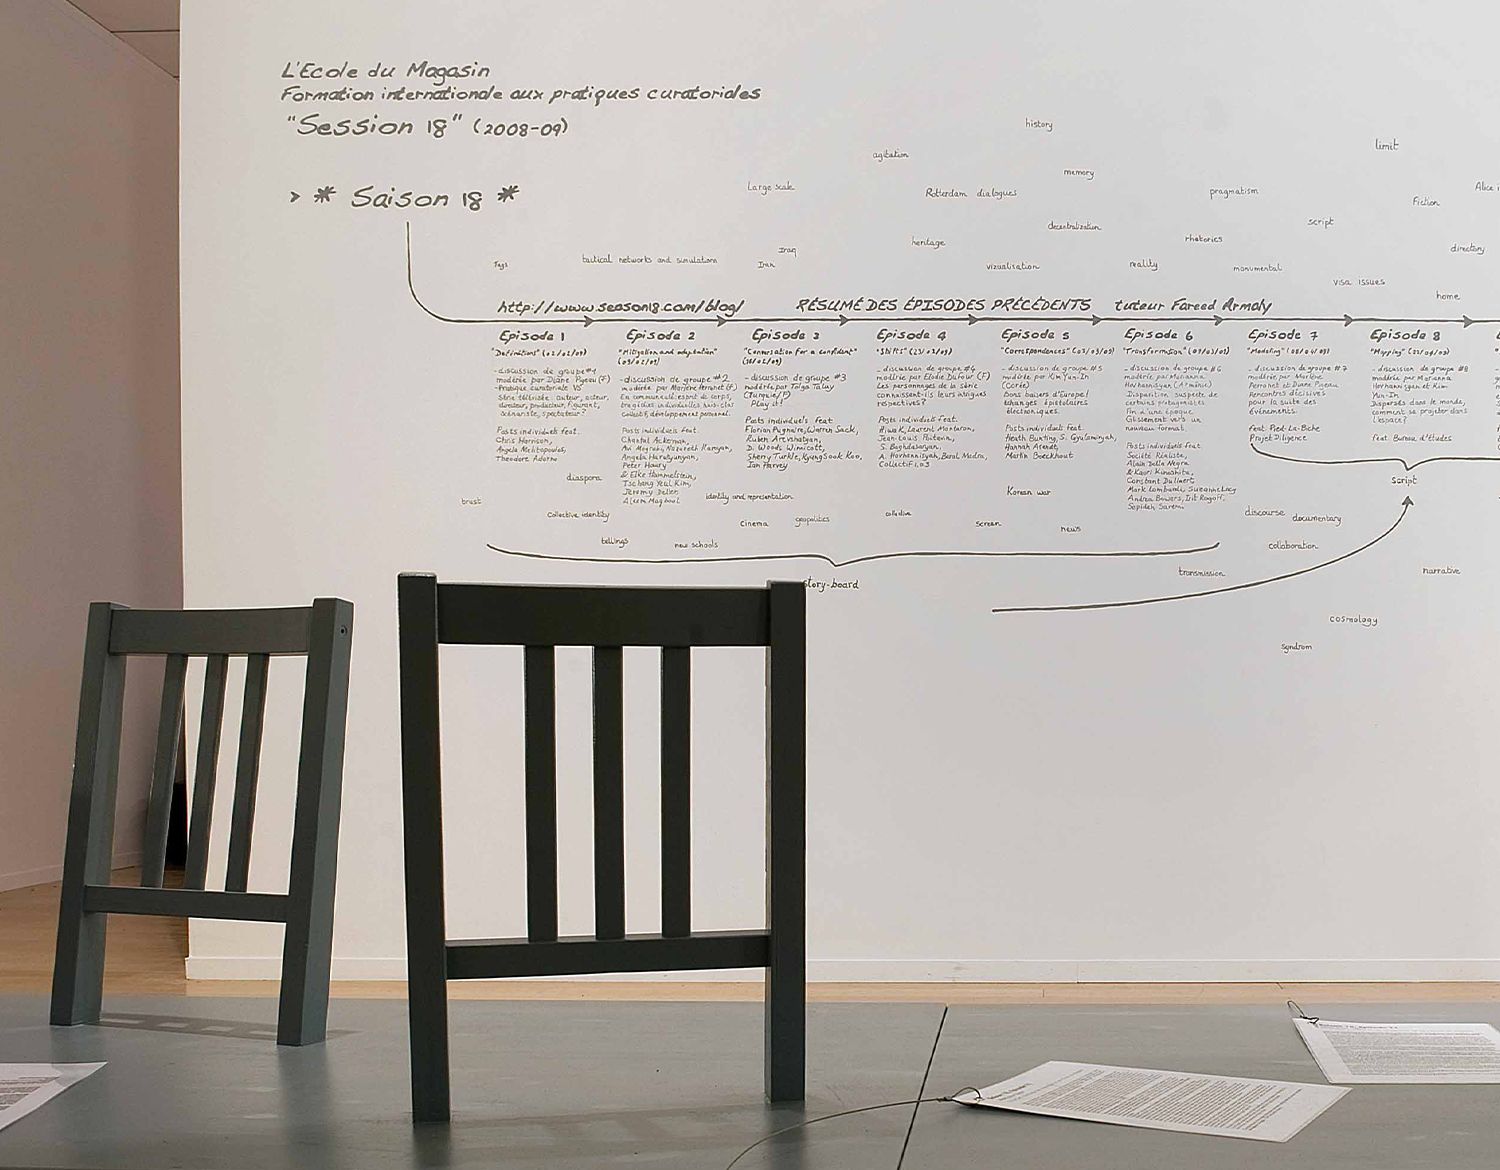 L'Ecole du Magasin
Formation internationale aux pratiques curatoriales
"Session 18" (2008-09)
> * Saison 18 *
history
agitation
limit
memory
Large scale
Rotterdam dialogues
pragmatism
Alice i
Fiction
script
decentralization
heritage
rhetorics
Iraq
directory
Tags
tactical networks and simulations
Iran
visualisation
reality
monumental
visa issues
home
http://www.season18.com/blog/ RÉSUMÉ DES ÉPISODES PRÉCÉDENTS tuteur Fareed Armaly
Episode 1
"Definitions" (02/02/09)
-discussion de groupe #1
modérée par Diane Pigeau (F)
-Pratique curatoriale VS
Série télévisée: auteur, acteur,
directeur, producteur, figurant,
scénariste, spectateur?
Posts individuels feat.
Chris Harrison,
Angela Melitopoulos,
Theodore Adorno
Episode 2
"Mitigation and adaptation"
(09/02/09)
-discussion de groupe #2
modérée par Marlène Perronet (F)
En communauté: esprit de corps,
tragédies individuelles hors-clos
Collectif, développement personnel.
Posts individuels feat.
Chantal Ackerman,
Avi Mograbi, Nazareth Karoyan,
Angela Harutyunyan,
Peter Haury
& Elke Himmelstein,
Tschang Yeul Kim,
Jeremy Deller,
Aleem Maqbool
Episode 3
"Conversation for a confident"
(16/02/09)
-discussion de groupe #3
modérée par Tolga Taluy
(Turquie/F)
Play it!
Posts individuels feat.
Florian Pugnaire, Warren Sack,
Ruben Arevshatyan,
D. Woods Winnicott,
Sherry Turkle, Kyung Sook Koo,
Ian Harvey
Episode 4
"Shifts" (23/02/09)
-discussion de groupe #4
modérée par Elodie Dufour (F)
Les personnages de la série
connaissent-ils leurs intrigues
respectives?
Posts individuels feat.
Hiwa K, Laurent Montaron,
Jean-Louis Poitevin,
S. Baghdasaryan,
A. Hovhannisyan, Beral Madra,
Collectif 1.0.3
Episode 5
"Correspondences" (02/03/09)
-discussion de groupe #5
modérée par Kim Yun-In
(Corée)
Bons baisers d'Europe!
Echanges épistolaires
électroniques.
Posts individuels feat.
Heath Bunting, S. Gyulamiryan,
Hannah Arendt,
Martin Boeckhout
Episode 6
"Transformation" (09/03/09)
-discussion de groupe #6
modérée par Marianna
Hovhannisyan (Arménie)
Disparition suspecte de
certains protagonistes
Fin d'une époque
Glissement vers un
nouveau format.
Posts individuels feat.
Société Réaliste,
Alain Della Negra
& Kaori Kinoshita,
Constant Dullaart
Mark Lombardi, Suzanne Lacy
Andrea Bowers, Irit Rogoff,
Sepideh Saremi
Episode 7
"Modeling" (06/04/09)
-discussion de groupe #7
modérée par Marlène
Perronet et Diane Pigeau
Rencontres décisives
pour la suite des
événements.
feat. Pied-La-Biche
Projet Diligence
Episode 8
"Mapping" (27/04/09)
-discussion de groupe #8
modérée par Marianna
Hovhannisyan et Kim
Yun-In
Dispersés dans le monde,
comment se projeter dans
l'espace?
feat. Bureau d'études
diaspora
Script
trust
identity and representation
Korean war
Collective identity
Cinema
geopolitics
collective
screen
news
discourse
documentary
tellings
new schools
collaboration
transmission
narrative
story-board
cosmology
syndrom